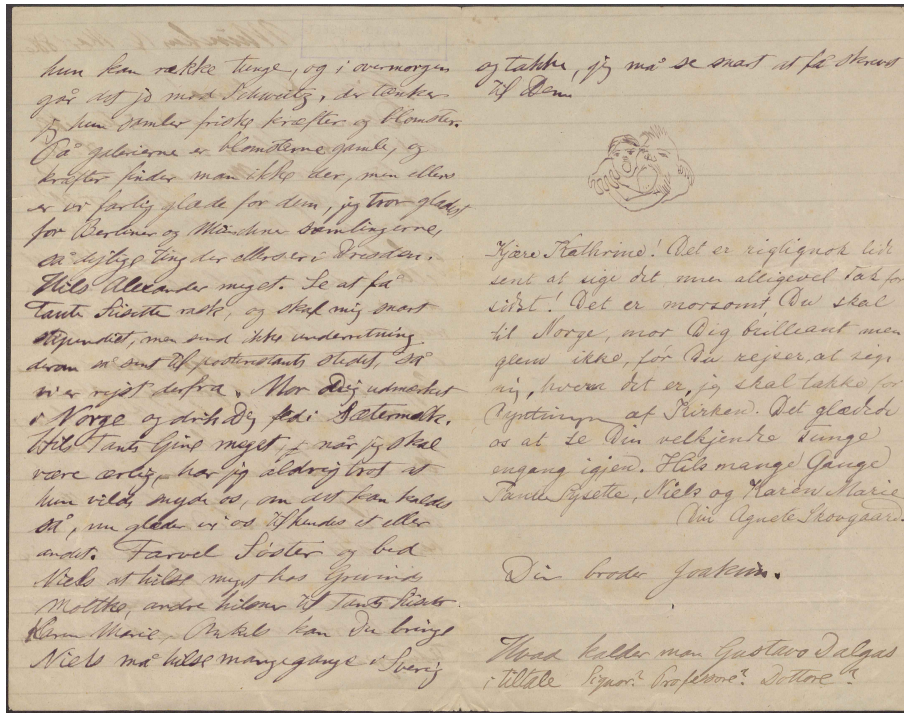 hun kan række tunge, og i overmorgen
går det jo mod Schweitz, der tænker
jeg hun samler friske kræfter og blomster.
På galerierne er blomsterne gamle, og
kræfter finder man ikke der, men ellers
er vi farlig glade for dem, jeg tror gladest
for Berliner og Münchner samlingerne,
så dejlige ting der ellers er i Dresden.
Hils Alexander meget. Se at få
Tante Lisette rask, og skaf mig snart
stipendiet, men send ikke underretning
derom så sent til postrestants stedet, så
vi er rejst derfra. Mor Dig udmærket
i Norge og drik Dig fed i Sætermælk.
Hils Tante Gine meget, når jeg skal
være ærlig, har jeg aldrig trot at
hun vilde snyde os, om det kan kaldes
så, nu glæder vi os til hendes et eller
andet. Farvel Søster og bed
Niels at hilse meget hos
Moltke, andre hilsner til Tante Lisette
Karen Marie, Onkels kan Du bringe
Niels må hilse mangegange i Sverig
og takke, jeg må se snart at få skrevet
til Dem
Kjære Kathrine! Det er rigtignok lidt
sent at sige det, men alligevel Tak for
sidst! Det er morsomt Du skal
til Norge, mor Dig brilliant men
glem ikke, før Du rejser, at sige
mig, hvem det er, jeg skal takke for
Pyntningen af Kirken. Det glædede
os at se Din velkjendte Tunge
engang igjen. Hils mange Gange
Tante Lysette, Niels og Karen Marie
Din Agnete Skovgaard.
Din broder Joakim.
Hvad kalder man Gustavo Dalgas
i tiltale Signor? Professore? Dottore?